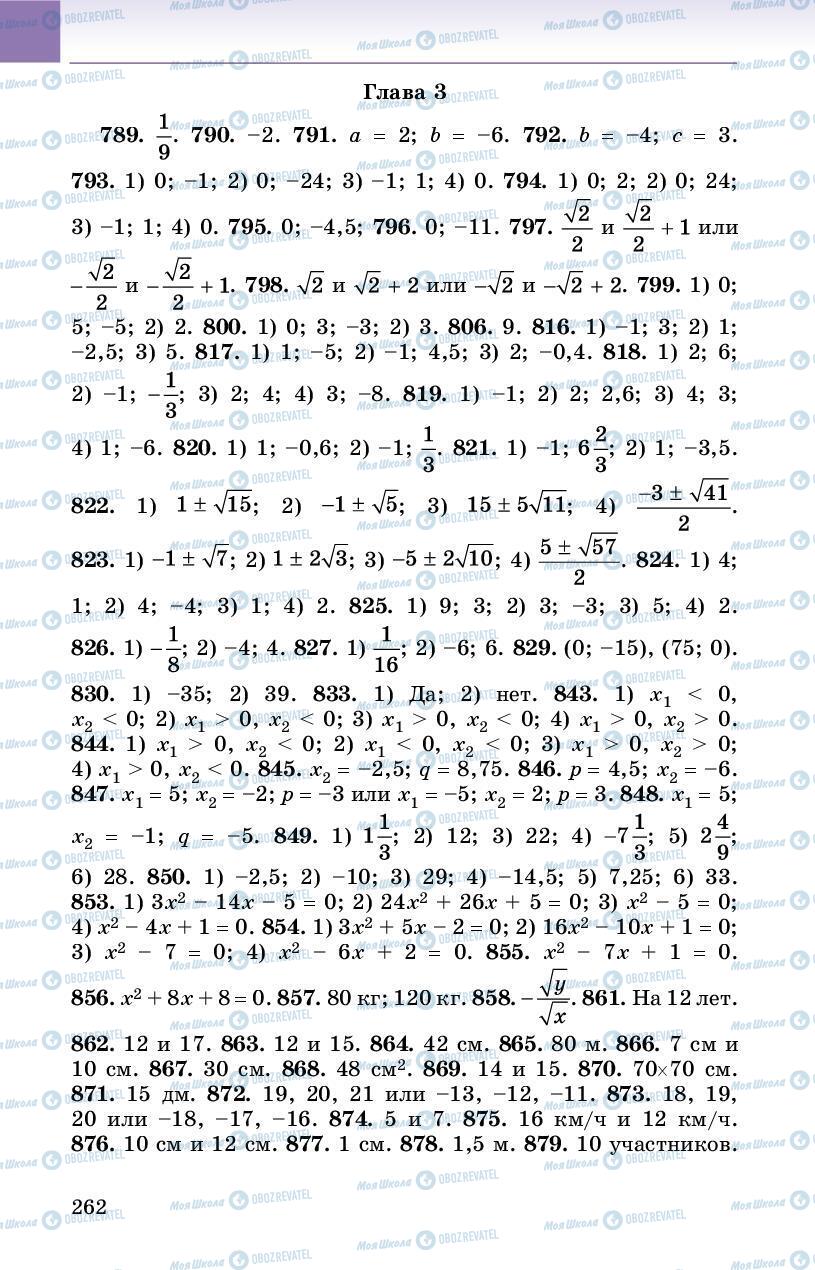 Глава 3
789. 1/9. 790. −2. 791. a = 2; b = −6. 792. b = −4; c = 3.
793. 1) 0; −1; 2) 0; −24; 3) −1; 1; 4) 0. 794. 1) 0; 2; 2) 0; 24;
3) −1; 1; 4) 0. 795. 0; −4,5; 796. 0; −11. 797. √2/2 и √2/2 + 1 или
−√2/2 и −√2/2 + 1. 798. √2 и √2 + 2 или −√2 и −√2 + 2. 799. 1) 0;
5; −5; 2) 2. 800. 1) 0; 3; −3; 2) 3. 806. 9. 816. 1) −1; 3; 2) 1;
−2,5; 3) 5. 817. 1) 1; −5; 2) −1; 4,5; 3) 2; −0,4. 818. 1) 2; 6;
2) −1; −1/3; 3) 2; 4; 4) 3; −8. 819. 1) −1; 2) 2; 2,6; 3) 4; 3;
4) 1; −6. 820. 1) 1; −0,6; 2) −1; 1/3. 821. 1) −1; 6 2/3; 2) 1; −3,5.
822. 1) 1 ± √15; 2) −1 ± √5; 3) 15 ± 5√11; 4) (−3 ± √41)/2.
823. 1) −1 ± √7; 2) 1 ± 2√3; 3) −5 ± 2√10; 4) (5 ± √57)/2. 824. 1) 4;
1; 2) 4; −4; 3) 1; 4) 2. 825. 1) 9; 3; 2) 3; −3; 3) 5; 4) 2.
826. 1) −1/8; 2) −4; 4. 827. 1) 1/16; 2) −6; 6. 829. (0; −15), (75; 0).
830. 1) −35; 2) 39. 833. 1) Да; 2) нет. 843. 1) x₁ < 0,
x₂ < 0; 2) x₁ > 0, x₂ < 0; 3) x₁ > 0, x₂ < 0; 4) x₁ > 0, x₂ > 0.
844. 1) x₁ > 0, x₂ < 0; 2) x₁ < 0, x₂ < 0; 3) x₁ > 0, x₂ > 0;
4) x₁ > 0, x₂ < 0. 845. x₂ = −2,5; q = 8,75. 846. p = 4,5; x₂ = −6.
847. x₁ = 5; x₂ = −2; p = −3 или x₁ = −5; x₂ = 2; p = 3. 848. x₁ = 5;
x₂ = −1; q = −5. 849. 1) 1 1/3; 2) 12; 3) 22; 4) −7 1/3; 5) 2 4/9;
6) 28. 850. 1) −2,5; 2) −10; 3) 29; 4) −14,5; 5) 7,25; 6) 33.
853. 1) 3x² − 14x − 5 = 0; 2) 24x² + 26x + 5 = 0; 3) x² − 5 = 0;
4) x² − 4x + 1 = 0. 854. 1) 3x² + 5x − 2 = 0; 2) 16x² − 10x + 1 = 0;
3) x² − 7 = 0; 4) x² − 6x + 2 = 0. 855. x² − 7x + 1 = 0.
856. x² + 8x + 8 = 0. 857. 80 кг; 120 кг. 858. −√y/√x. 861. На 12 лет.
862. 12 и 17. 863. 12 и 15. 864. 42 см. 865. 80 м. 866. 7 см и
10 см. 867. 30 см. 868. 48 см². 869. 14 и 15. 870. 70×70 см.
871. 15 дм. 872. 19, 20, 21 или −13, −12, −11. 873. 18, 19,
20 или −18, −17, −16. 874. 5 и 7. 875. 16 км/ч и 12 км/ч.
876. 10 см и 12 см. 877. 1 см. 878. 1,5 м. 879. 10 участников.
262